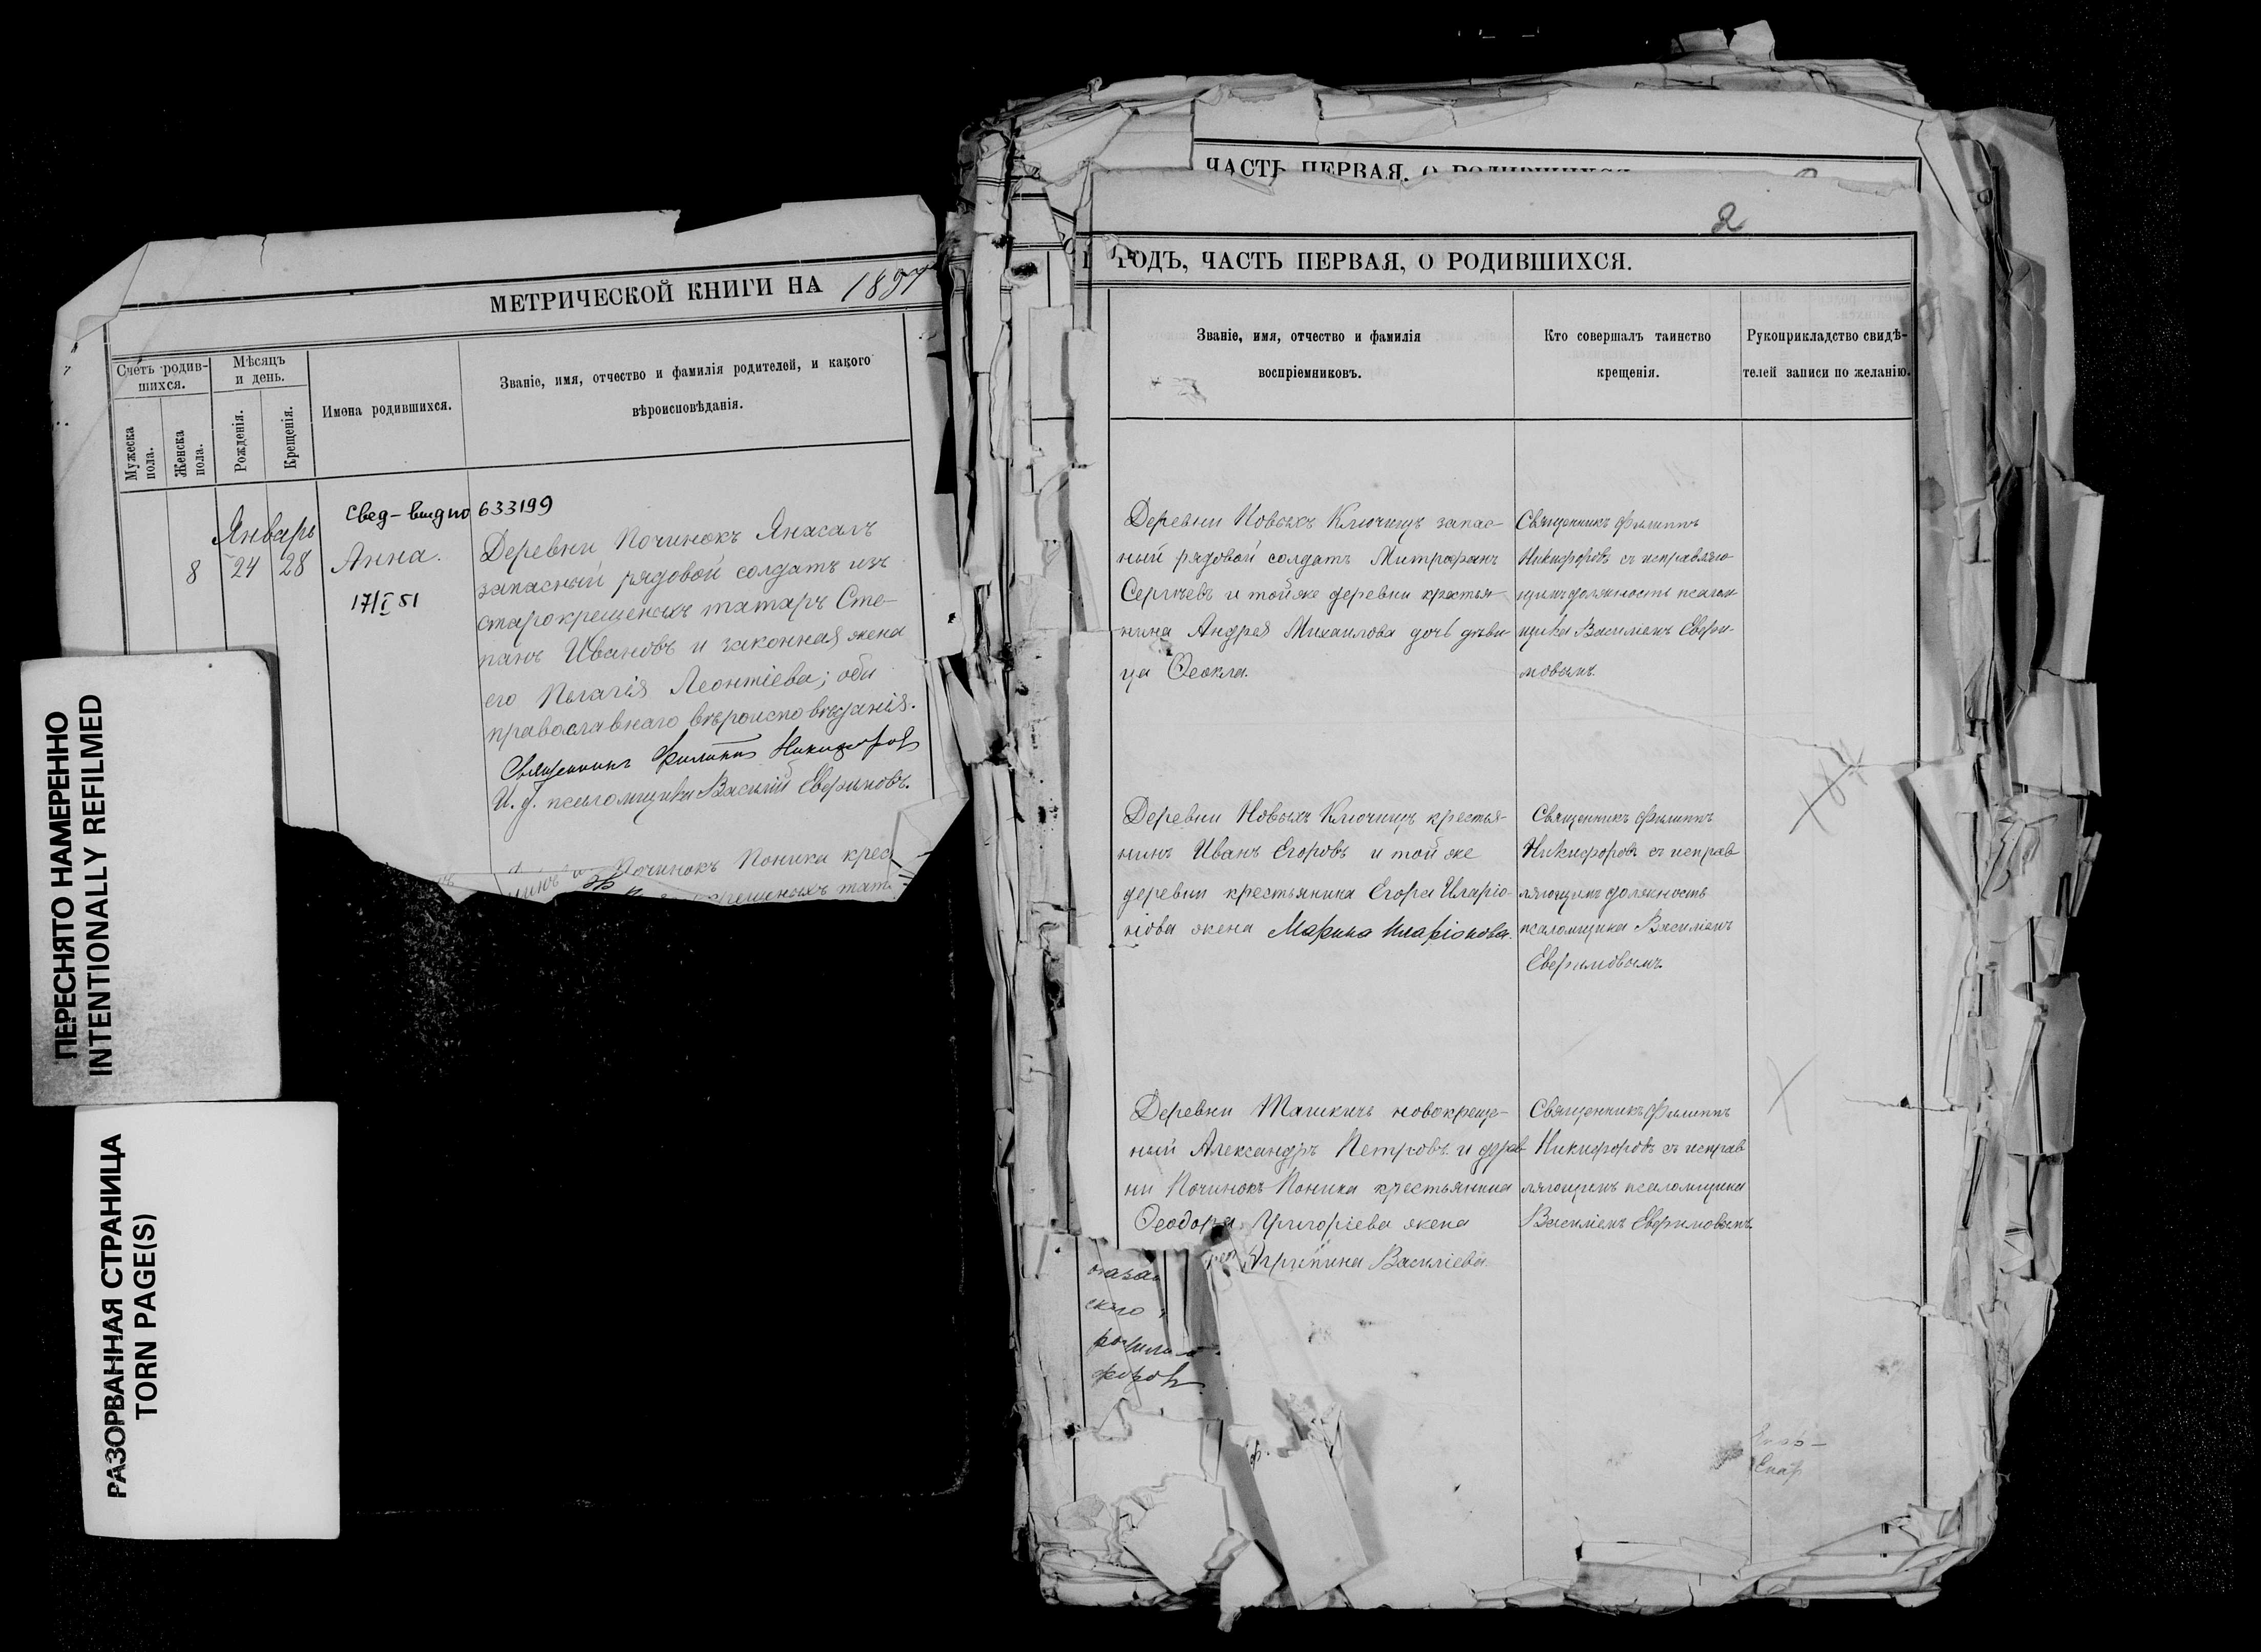 МЕТРИЧЕСКОЙ КНИГИ НА 1897
Счетъ родив-
шихся.
Мужеска
пола.
Женска
пола.
Мѣсяцъ
и день.
Рожденія.
Крещенія.
Имена родившихся.
Званіе, имя, отчество и фамилія родителей, и какого
вѣроисповѣданія.
633199
Январь
8 24 28 Анна.
17/I 51
Деревни Починокъ Янасалъ
запасный рядовой солдатъ изъ
старокрещеныхъ татаръ Сте-
панъ Ивановъ и законная жена
его Пелагія Леонтіева; оби
православнаго вѣроисповѣданія.
Священникъ Филиппъ Никифоровъ
И. д. псаломщика Василій Евфимовъ.
Починокъ Поника крес
крещеныхъ тат
ПЕРЕСНЯТО НАМЕРЕННО
INTENTIONALLY REFILMED
РАЗОРВАННАЯ СТРАНИЦА
TORN PAGE(S)
ЧАСТЬ ПЕРВАЯ, О РОДИВШИХСЯ
2
ГОДЪ, ЧАСТЬ ПЕРВАЯ, О РОДИВШИХСЯ.
Званіе, имя, отчество и фамилія
воспріемниковъ.
Кто совершалъ таинство
крещенія.
Рукоприкладство свидѣ-
телей записи по желанію.
Деревни Новыхъ Ключищъ запас-
ный рядовой солдатъ Митрофанъ
Сергѣевъ и той же деревни крестья-
нина Андрея Михаилова дочь дѣви-
ца Ѳеокла.
Священникъ Филиппъ
Никифоровъ съ исправляю-
щимъ должность псалом-
щика Василіемъ Евфи-
мовымъ.
Деревни Новыхъ Ключищъ крестья-
нинъ Иванъ Егоровъ и той же
деревни крестьянина Егора Иларіо-
нова жена Марина Иларіонова.
Священникъ Филиппъ
Никифоровъ съ исправ
ляющимъ должность
псаломщика Василіемъ
Евфимовымъ.
Деревни Ташкичъ новокреще-
ный Александръ Петровъ и дерев-
ни Починокъ Поника крестьянина
Ѳеодора Григоріева жена
Агрипина Василіева.
Священникъ Филиппъ
Никифоровъ съ исправ
ляющимъ псаломщика
Василіемъ Евфимовымъ.
форовъ